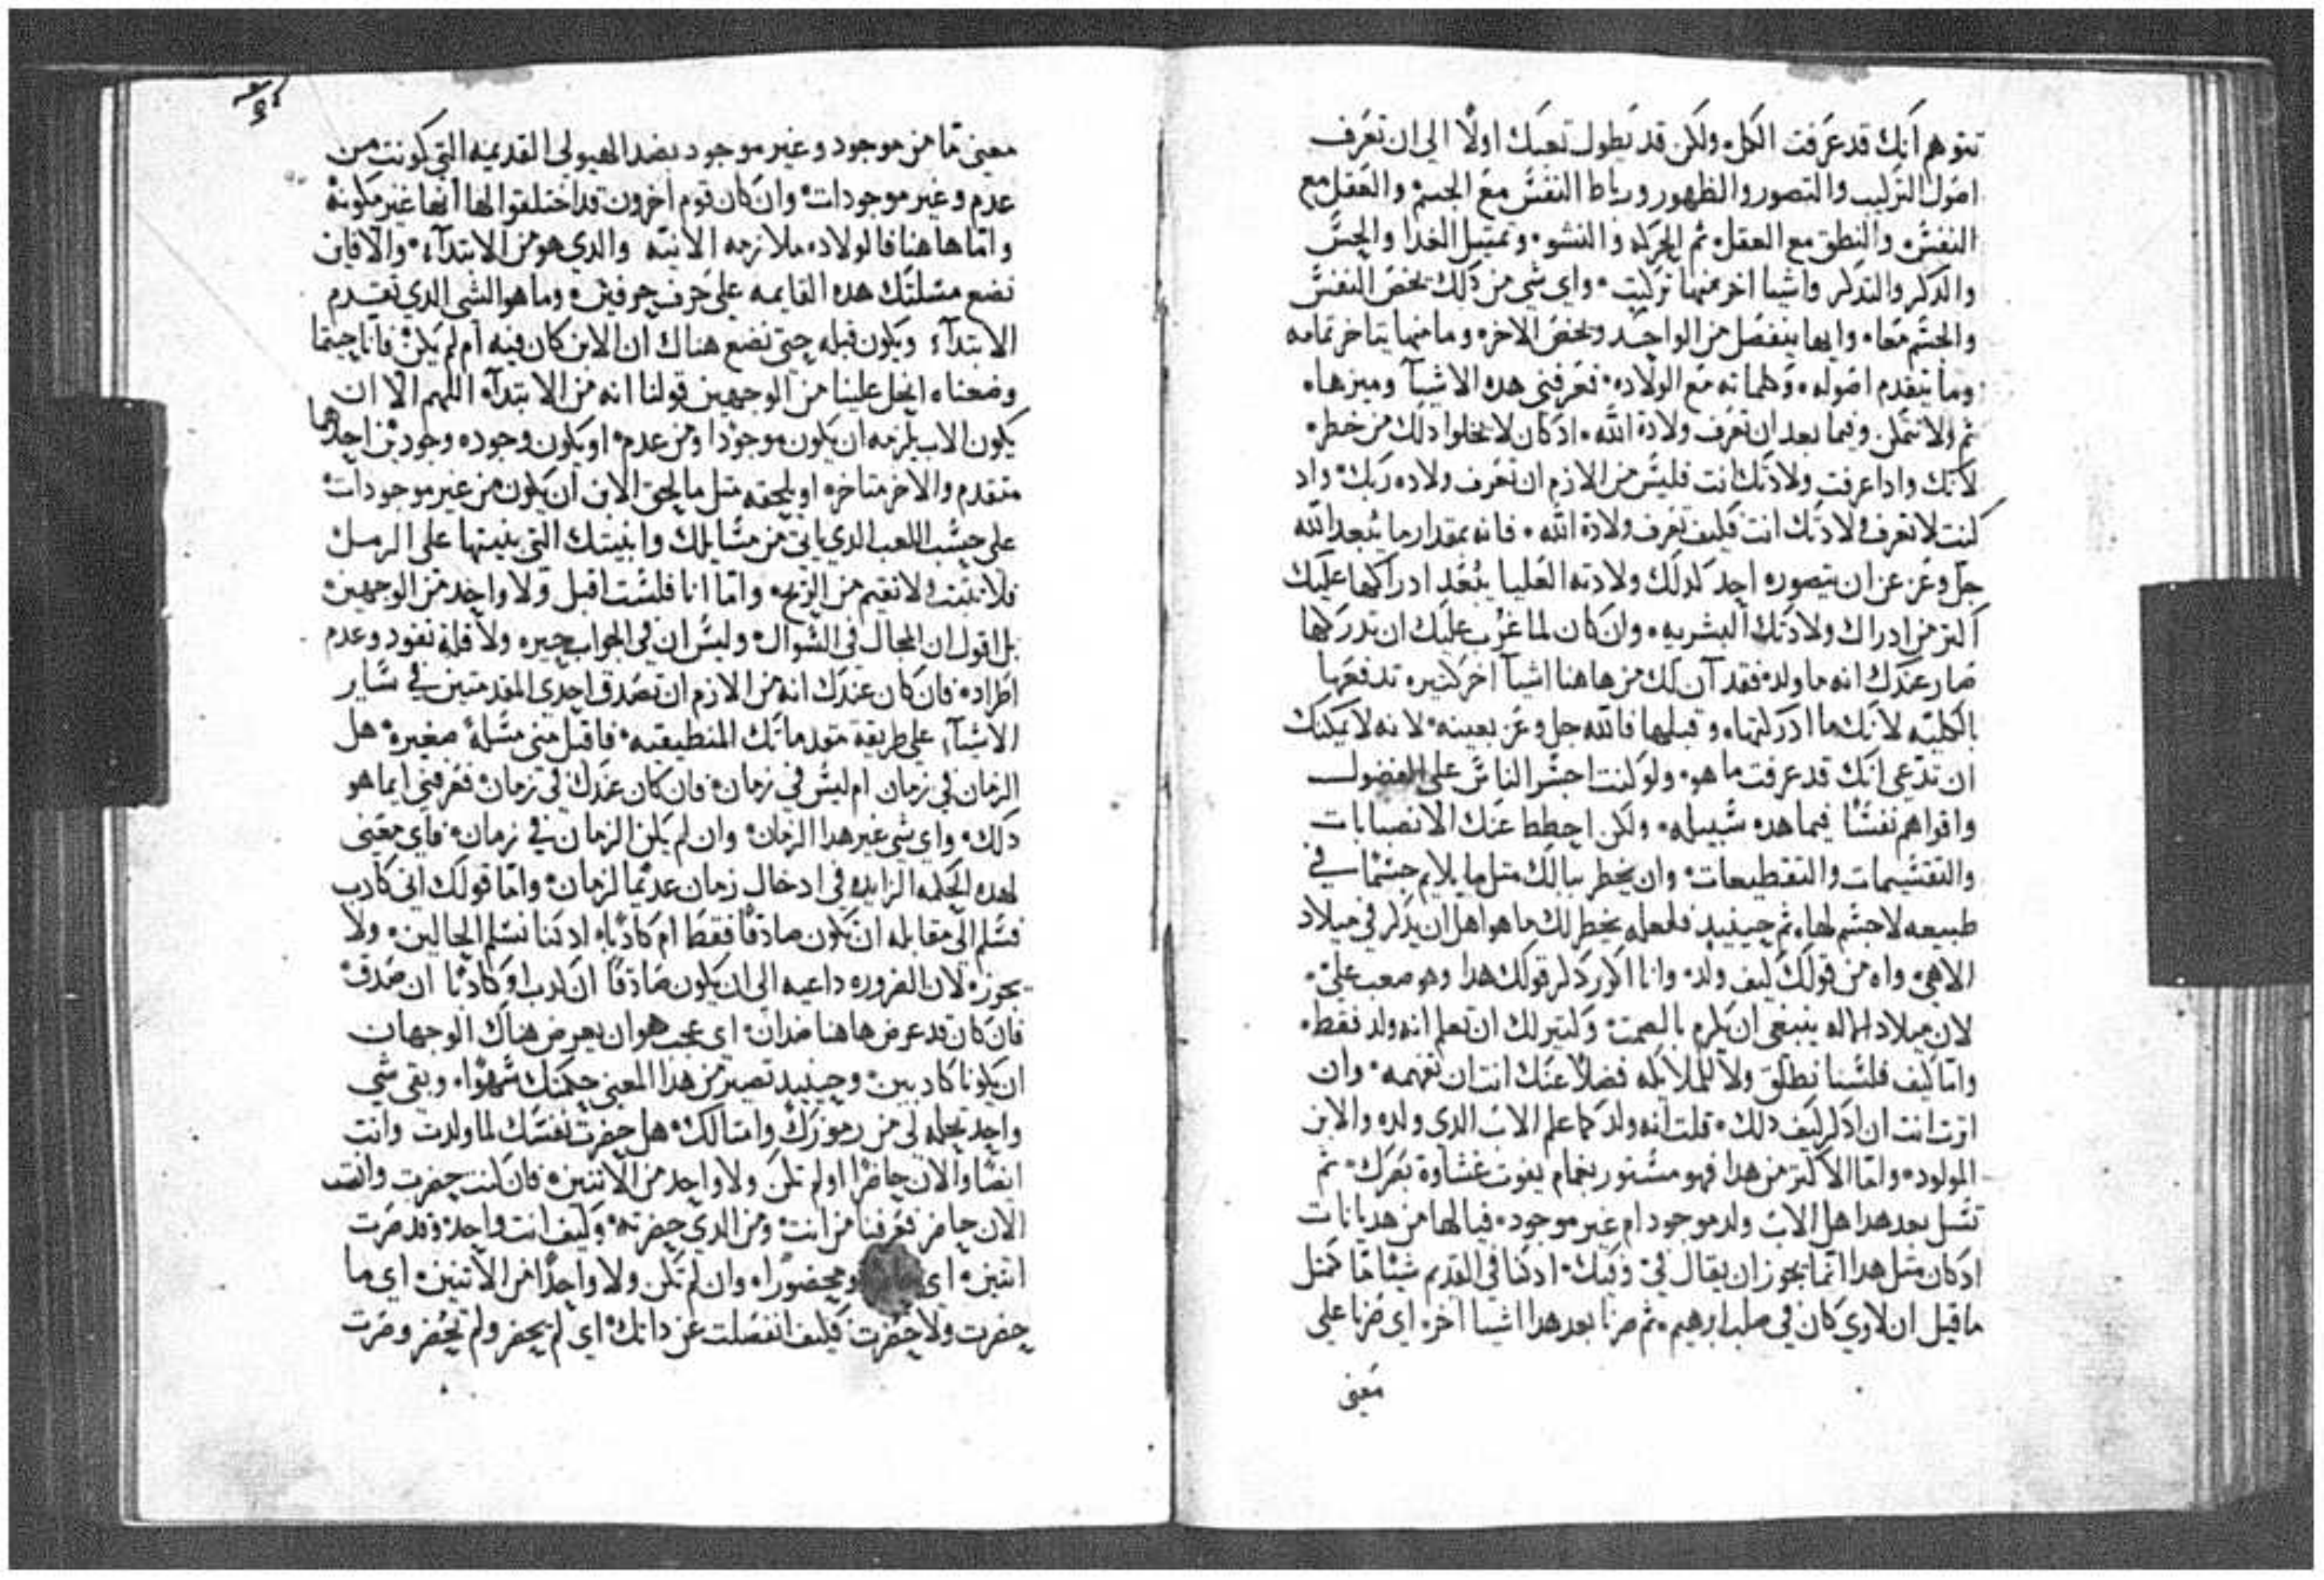 تتوهم انك قد عرفت الكل ولكن قد يطول تعبك اولا الي ان تعرف
اصول التركيب والتصور والظهور ورباط النفس مع الجسم والعقل مع
النفس والنطق مع العقل ثم الحركه والنشو وتمثيل الغدا والحس
والدكر والتدكر واشيا اخر منها تركبت واي شي من دلك يخص النفس
والجسم معا وايها ينفصل من الواحد ويخص الاخر وما منها يتاخر تمامه
وما يتقدم اصوله وكلماته مع الولاده فعرفني هده الاشيآ وميزها
ثم ولا تتفلسن وفيما بعد ان تعرف ولادة الله ادكان لا يخلوا دلك من خطر
لانك وادا عرفت ولادتك انت فليس من الازم ان تعرف ولاده ربك واد
كنت لا تعرف ولادتك انت فكيف تعرف ولادة الله فانه بمقدار ما يبعد الله
جل وعز عن ان يتصوره احد كدلك ولادته العليا يبعد ادراكها عليك
اكتر من ادراك ولادتك البشريه وان كان لما عزب عليك ان تدركها
صار عندك انه ما ولد فقد آن لك من هاهنا اشيآ اخر كتيره تدفعها
بالكليه لانك ما ادركتها وقبلها فالله جل وعز بعينه لانه لا يمكنك
ان تدعي انك قد عرفت ما هو ولو كنت اجسر الناس علي الفضول
واقواهم نفسا فيما هده سبيله ولكن احطط عنك الانصبابات
والتقسيمات والتقطيعات وان يخطر ببالك متل ما يلايم جسما في
طبيعه لا جسم لها ثم حينيد فلعله يخطر لك ما هو اهل ان يدكر في ميلاد
الاهي واه من قولك كيف ولد وانا اكرر دكر قولك هدا وهو صعب علي
لان ميلاد الاله ينبغي ان يكرم بالصمت وكتير لك ان تعلم انه ولد فقط
واما كيف فلسنا نطلق ولا للملايكه فضلا عنك انت ان تفهمه وان
اترت انت ان ادكر كيف دلك قلت انه ولد كما علم الاب الدي ولده والابن
المولود واما الاكتر من هدا فهو مستور بغمام يفوت غشاوة بصرك ثم
تسل بعد هدا هل الاب ولد موجود ام غير موجود فيا لها من هديانات
ادكان متل هدا انما يجوز ان يقال في وفيك ادكنا في القديم شيئا ما كمتل
ما قيل ان لاوي كان في صلب ابرهيم ثم صرنا بعد هدا اشيا اخر اي صرنا علي
معني
معني ما من موجود وغير موجود بضد الهيولي القديمه التي كونت من
عدم وغير موجودات وان كان قوم اخرون قد اختلقوا لها انها غير مكونه
واما هاهنا فالولاده ملازمه الانيه والدي هو من الابتدآء والا فاين
نضع مسلتك هده القايمه علي حرف جرفين وما هو الشي الدي تقدم
الابتدآء ويكون قبله حتي نضع هناك ان الابن كان فيه ام لم يكن فانا حيتما
وضعناه انحل علينا من الوجهين قولنا انه من الابتدآء اللهم الا ان
يكون الاب يلزمه ان يكون موجودا ومن عدم او يكون وجوده وجودين احدهما
متقدم والاخر متاخر او يلحقه متل ما لحق الابن ان يكون من غير موجودات
علي حسب اللعب الدي ياتي من مسايلك وابنيتك التي بنيتها علي الرمل
فلا تتبت ولا تقيم من الريح واما انا فلست اقبل ولا واحد من الوجهين
بل اقول ان المحال في السوال وليس ان في الجواب حيره ولا قلة نفود وعدم
اطراد فان كان عندك انه من الازم ان تصدق احدي المقدمتين في ساير
الاشيآء علي طريقة متقدماتك المنطيقيه فاقبل مني مسلة صغيره هل
الزمان في زمان ام ليس في زمان فان كان عندك في زمان فعرفني ايما هو
دلك واي شي غير هدا الزمان وان لم يكن الزمان في زمان فاي معني
لهده الحكمه الزايده في ادخال زمان عديما لزمان واما قولك اني كادب
فسلم الي مقابله ان تكون صادقا فقط ام كادبا ادكنا نسلم الحالين ولا
يجوز لان الضروره داعيه الي ان يكون صادقا ان كدب او كادبا ان صدق
فان كان قد عرض هاهنا ضدان اي عجب هو ان يعرض هناك الوجهان
ان يكونا كادبين وحينيد تصير من هدا المعني حكمتك سهوا وبقي شي
واحد تحله لي من رموزك وامتالك هل حضرت نفسك لما ولدت وانت
ايضا والان حاضرا او لم تكن ولا واحد من الاتنين فان كنت حضرت وانت
الان حاضر فعرفنا من انت ومن الدي حضرته وكيف انت واحد وقد صرت
اتنين اي ومحضورا وان لم تكن ولا واحدا من الاتنين اي ما
حضرت ولا حضرت فكيف انفصلت عن داتك اي لم يحضر ولم تحضر وصرت